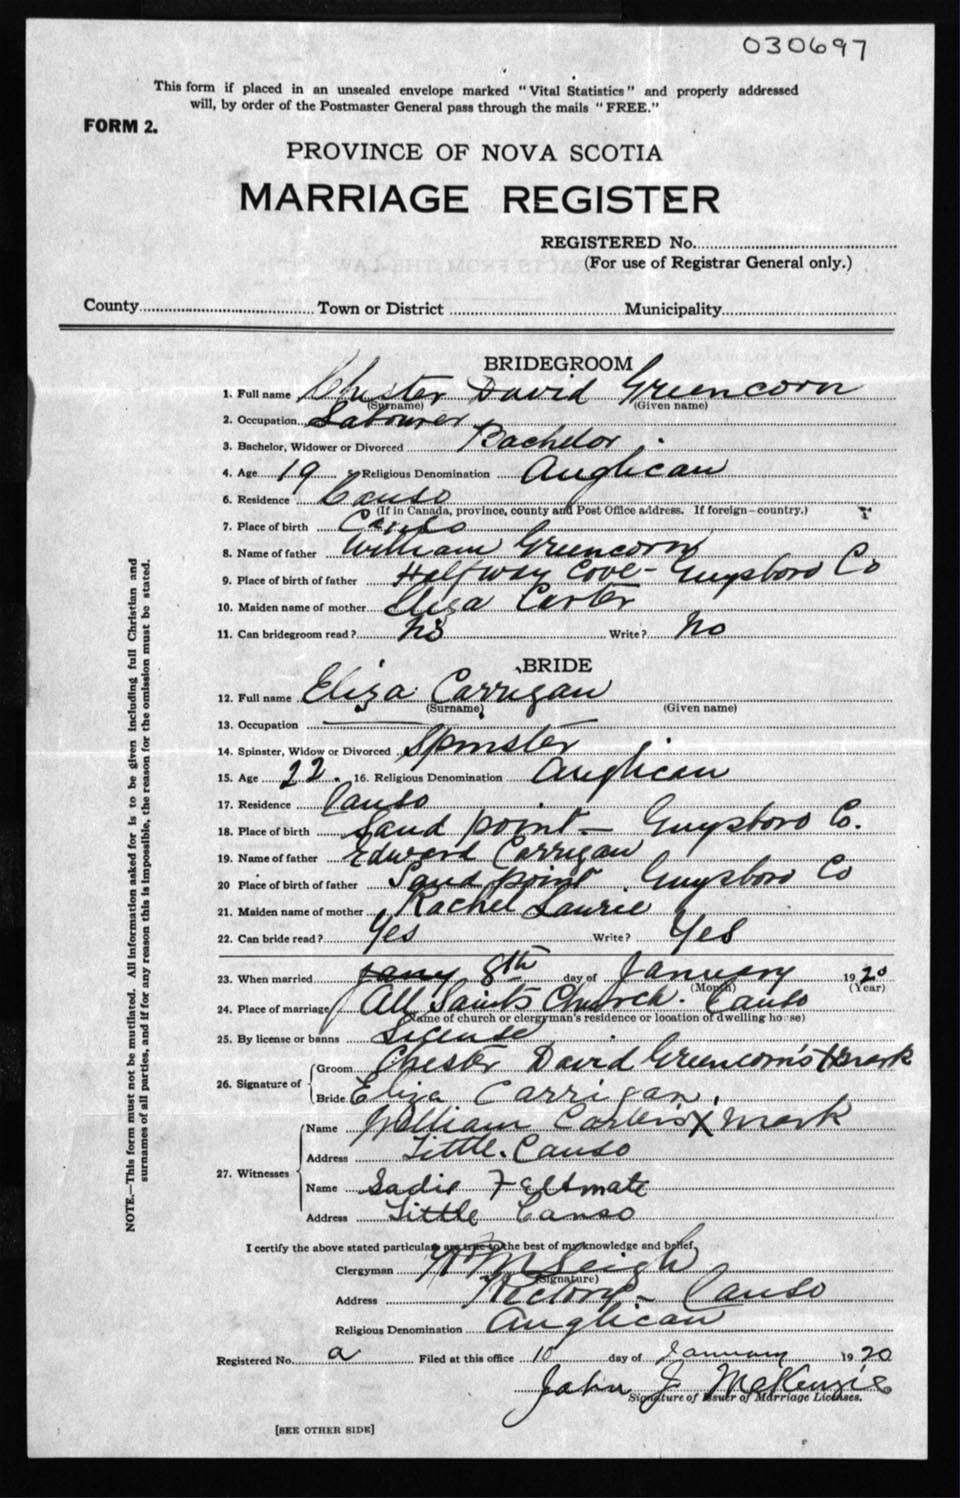 030697
This form if placed in an unsealed envelope marked "Vital Statistics" and properly addressed
will, by order of the Postmaster General pass through the mails "FREE."
FORM 2.
PROVINCE OF NOVA SCOTIA
MARRIAGE REGISTER
REGISTERED No.
(For use of Registrar General only.)
County Town or District Municipality
BRIDEGROOM
1. Full name Chester David Greencorn
(Surname) (Given name)
2. Occupation Labourer
3. Bachelor, Widower or Divorced Bachelor
4. Age 19 5. Religious Denomination Anglican
6. Residence Canso
(If in Canada, province, county and Post Office address. If foreign—country.)
7. Place of birth Canso
8. Name of father William Greencorn
9. Place of birth of father Halfway Cove - Guysboro Co
10. Maiden name of mother Eliza Carter
11. Can bridegroom read? No Write? No
BRIDE
12. Full name Eliza Carrigan
(Surname) (Given name)
13. Occupation
14. Spinster, Widow or Divorced Spinster
15. Age 22. 16. Religious Denomination Anglican
17. Residence Canso
18. Place of birth Sand point - Guysboro Co.
19. Name of father Edward Carrigan
20 Place of birth of father Sand point Guysboro Co
21. Maiden name of mother Rachel Laurie
22. Can bride read? Yes Write? Yes
23. When married jany 8th day of January 1920
(Month) (Year)
24. Place of marriage All Saints Church. Canso
(Name of church or clergyman's residence or location of dwelling house)
25. By license or banns License
26. Signature of Groom Chester David Greencorn's X mark
Bride Eliza Carrigan.
27. Witnesses Name William Carter's X mark
Address Little Canso
Name Sadie Feltmate
Address Little Canso
I certify the above stated particulars are true to the best of my knowledge and belief,
Clergyman
(Signature)
Address Rectory - Canso
Religious Denomination Anglican
Registered No. 2 Filed at this office 10 day of January 1920
John J McKenzie
Signature of Issuer of Marriage Licenses.
[SEE OTHER SIDE]
NOTE.—This form must not be mutilated. All information asked for is to be given including full Christian and
surnames of all parties, and if for any reason this is impossible, the reason for the omission must be stated.